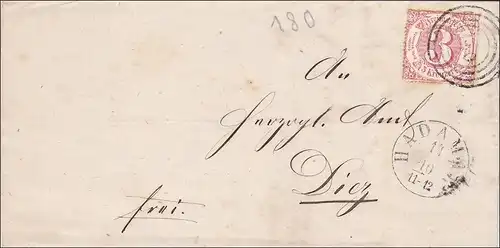 180
3
An
Herzogl. Amt
HADAM
14
10
11-12
Diez
frei.